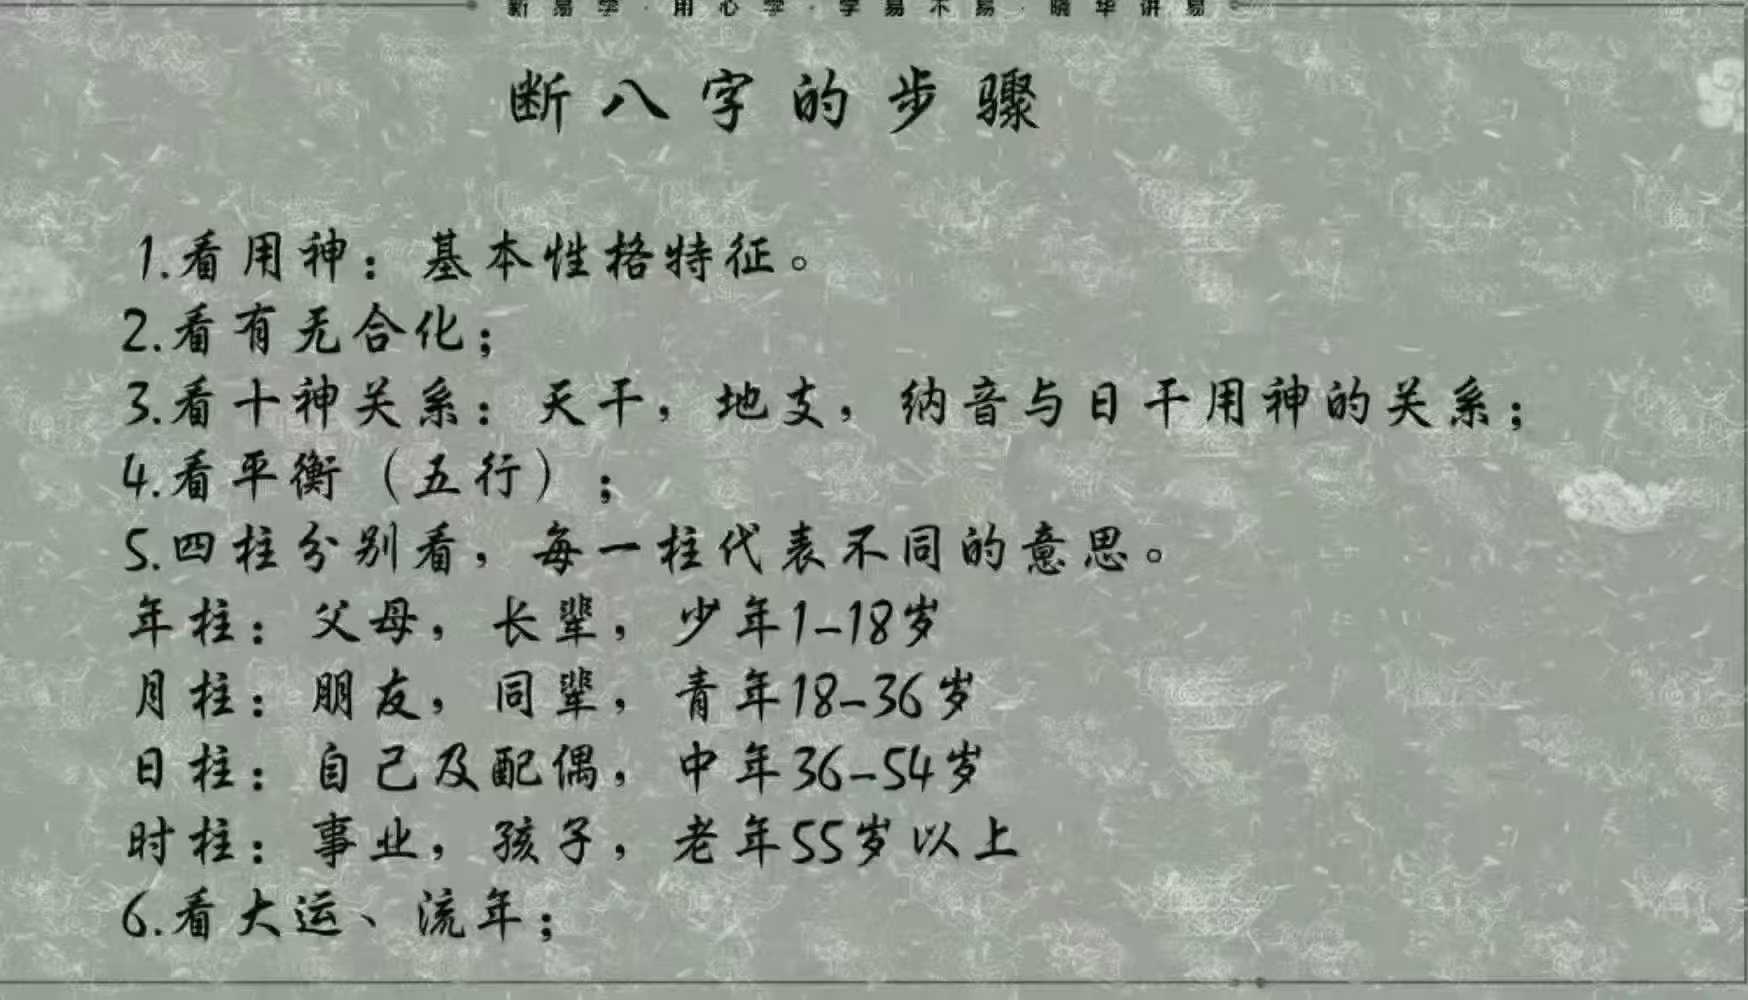 新易学·用心学·学易不易·晓华讲易
断八字的步骤
1.看用神：基本性格特征。
2.看有无合化；
3.看十神关系：天干，地支，纳音与日干用神的关系；
4.看平衡（五行）；
5.四柱分别看，每一柱代表不同的意思。
年柱：父母，长辈，少年1-18岁
月柱：朋友，同辈，青年18-36岁
日柱：自己及配偶，中年36-54岁
时柱：事业，孩子，老年55岁以上
6.看大运、流年；